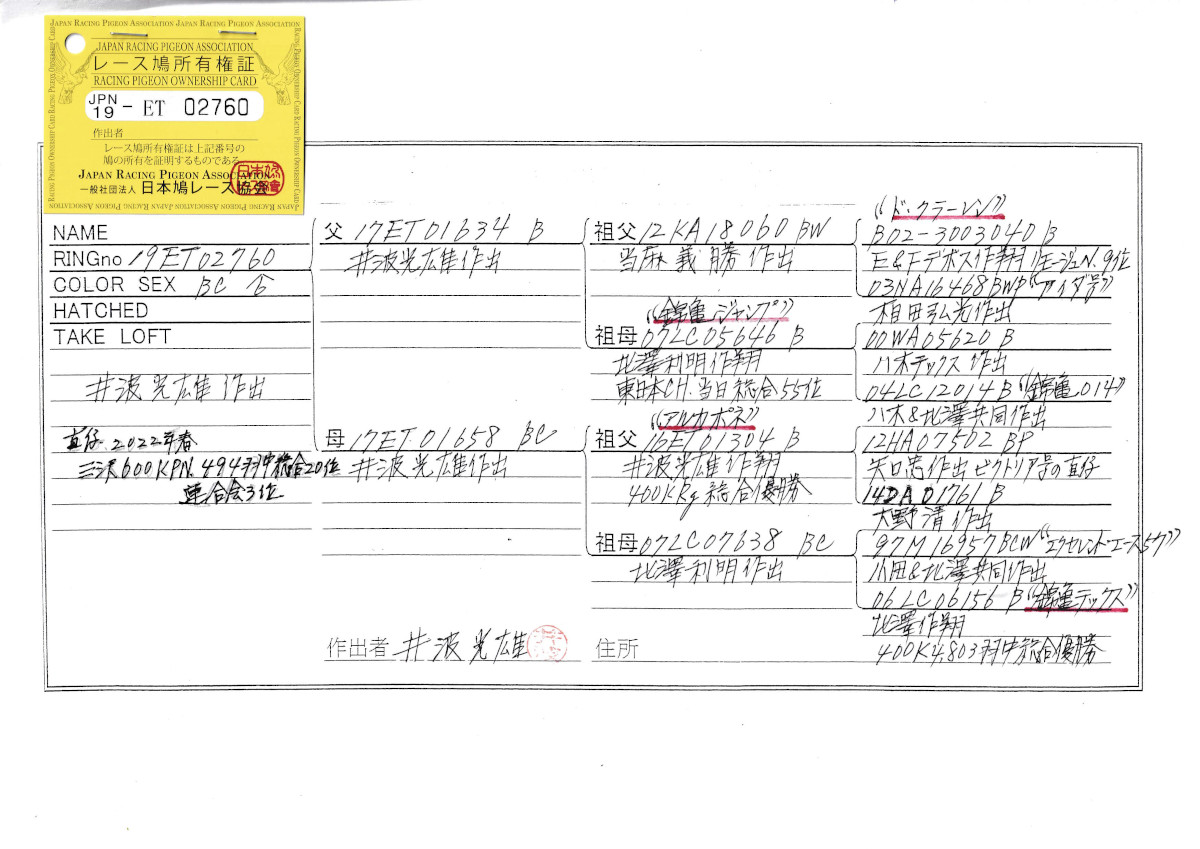 JAPAN RACING PIGEON ASSOCIATION JAPAN RACING PIGEON ASSOCIATION
JAPAN RACING PIGEON ASSOCIATION
レース鳩所有権証
RACING PIGEON OWNERSHIP CARD
JPN 19 - ET 02760
作出者
レース鳩所有権証は上記番号の
鳩の所有を証明するものである。
JAPAN RACING PIGEON ASSOCIATION
一般社団法人 日本鳩レース協会
NAME
RINGno 19ET02760
COLOR SEX BC ♀
HATCHED
TAKE LOFT
井波光雄作出
直仔 2022年春
三沢600KPN.494羽中総合20位
連合会3位
父 17ET01634 B
井波光雄作出
母 17ET01658 BC
井波光雄作出
作出者 井波光雄
祖父 12KA18060 BW
当麻義勝作出
"錦亀ジャンプ"
祖母 07LC05646 B
北澤利明作翔
東日本CH.当日総合55位
"アルカポネ"
祖父 16ET01304 B
井波光雄作翔
400KRg総合優勝
祖母 07LC07638 BC
北澤利明作出
住所
"ド・クラーレン"
B02-3003040 B
E&Fデボス作翔リモージュN.9位
03NA16468BWP"アイダ号"
相田弘光作出
00WA05620 B
八木テックス作出
04LC12014 B"錦亀014"
八木&北澤共同作出
12HA07502 BP
矢口忠作出ビクトリア号の直仔
14DA01761 B
大野清作出
97M16957BCW"エクセレントエース57"
小田&北澤共同作出
06LC06156 B"錦亀テックス"
北澤作翔
400K4,803羽中総合優勝